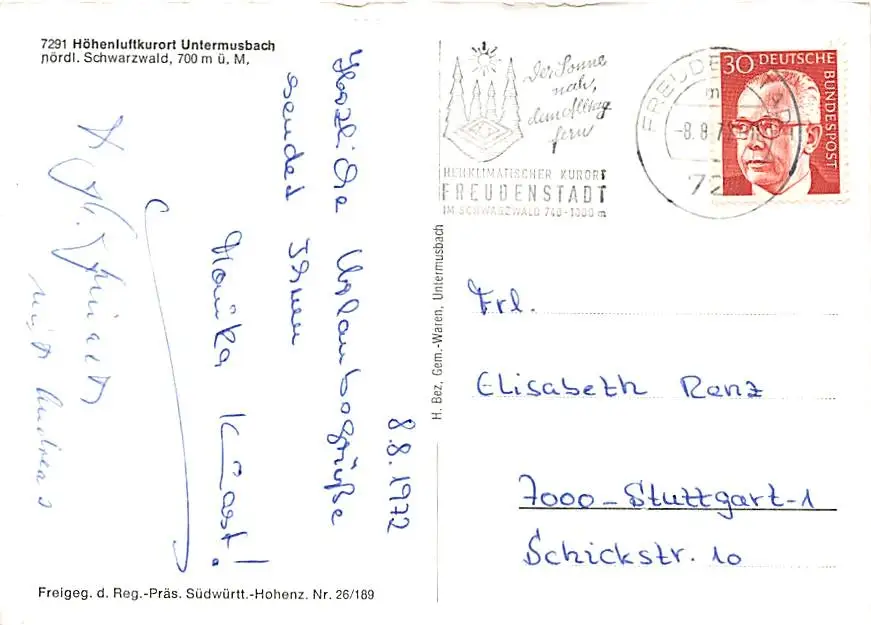 7291 Höhenluftkurort Untermusbach
nördl. Schwarzwald, 700 m ü. M.
8.8.1972
Herzliche Urlaubsgrüße
sendet Ihnen
Monika
mit Andreas
Freigeg. d. Reg.-Präs. Südwürtt.-Hohenz. Nr. 26/189
H. Bez, Gem.-Waren, Untermusbach
Der Sonne
nah,
dem Alltag
fern
HEILKLIMATISCHER KURORT
FREUDENSTADT
IM SCHWARZWALD 740-1000 m
-8.8.7
72
30
DEUTSCHE
BUNDESPOST
Frl.
Elisabeth Renz
7000-Stuttgart-1
Schickstr. 10